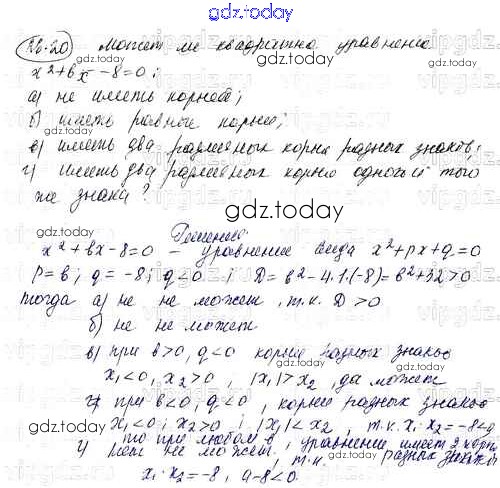 gdz.today
26.20 Может ли квадратное уравнение
x²+bx-8=0;
gdz.today
а) не иметь корней;
б) иметь равные корни;
в) иметь два различных корня разных знаков;
г) иметь два различных корня одного и того
же знака?
gdz.today
Решение
x²+bx-8=0 – уравнение вида x²+px+q=0
p=b; q=-8; q<0; D=b²-4·1·(-8)=b²+32>0
тогда а) не не может, т.к. D>0
б) не не может
gdz.today
в) при b>0, q<0 корни разных знаков
x₁<0, x₂>0, |x₁|>x₂, да может
при b<0, q<0, корни разных знаков
x₁<0; x₂>0, |x₁|<x₂, т.к. x₁·x₂=-8<0
то при любом b, уравнение имеет 2 корня
разных знаков
г) не может, т.к.
x₁·x₂=-8, а-8<0.
gdz.today